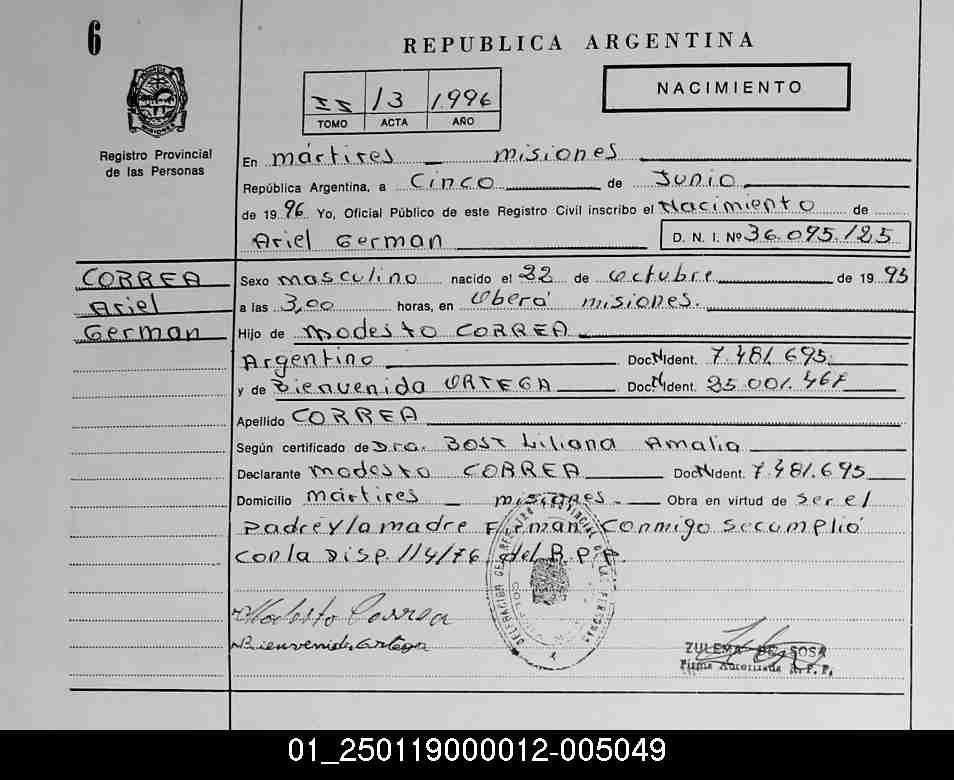 6
REPUBLICA ARGENTINA
II 13 1996
TOMO ACTA AÑO
NACIMIENTO
Registro Provincial
de las Personas
En mártires misiones
República Argentina, a Cinco de Junio
de 1996 Yo, Oficial Público de este Registro Civil inscribo el Nacimiento de
Ariel German D. N. I. Nº 36.095.125
CORREA
Ariel
German
Sexo masculino nacido el 22 de Octubre de 1995
a las 3,00 horas, en Oberá misiones.
Hijo de Modesto CORREA
Argentino Doc N Ident. 7.481.695
y de Bienvenida ORTEGA Doc N Ident. 25.001.467
Apellido CORREA
Según certificado de Dra. BOST Liliana Amalia
Declarante Modesto CORREA Doc N Ident. 7.481.695
Domicilio mártires misiones Obra en virtud de Ser el
Padre y la madre Firman Conmigo Se cumplió
Con la Disp. 114/76 del R.p.p.
Modesto Correa
Bienvenida Ortega
ZULEMA DE SOSA
Firma Autorizada R. P. P.
01_250119000012-005049